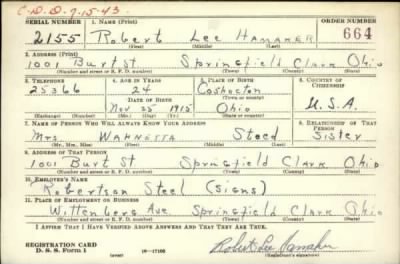 C-D.D. 9-15-43.
SERIAL NUMBER 1. NAME (Print) ORDER NUMBER
2155 Robert Lee Hamaker 664
(First) (Middle) (Last)
2. ADDRESS (Print)
1001 Burt St Springfield Clark Ohio
(Number and street or R. F. D. number) (Town) (County) (State)
3. TELEPHONE 4. AGE IN YEARS 5. PLACE OF BIRTH 6. COUNTRY OF CITIZENSHIP
25366 24 Coshocton
DATE OF BIRTH (Town or county)
Nov 25 1915 Ohio U.S.A.
(Exchange) (Number) (Mo.) (Day) (Yr.) (State or country)
7. NAME OF PERSON WHO WILL ALWAYS KNOW YOUR ADDRESS 8. RELATIONSHIP OF THAT PERSON
Mrs Wahnetta Steed Sister
(Mr., Mrs., Miss) (First) (Middle) (Last)
9. ADDRESS OF THAT PERSON
1001 Burt St Springfield Clark Ohio
(Number and street or R. F. D. number) (Town) (County) (State)
10. EMPLOYER'S NAME
Robertson Steel (Signs)
11. PLACE OF EMPLOYMENT OR BUSINESS
Wittenberg Ave Springfield Clark Ohio
(Number and street or R. F. D. number) (Town) (County) (State)
I AFFIRM THAT I HAVE VERIFIED ABOVE ANSWERS AND THAT THEY ARE TRUE.
REGISTRATION CARD
D. S. S. Form 1 (over) 16-17105 Robert Lee Hamaker
(Registrant's signature)